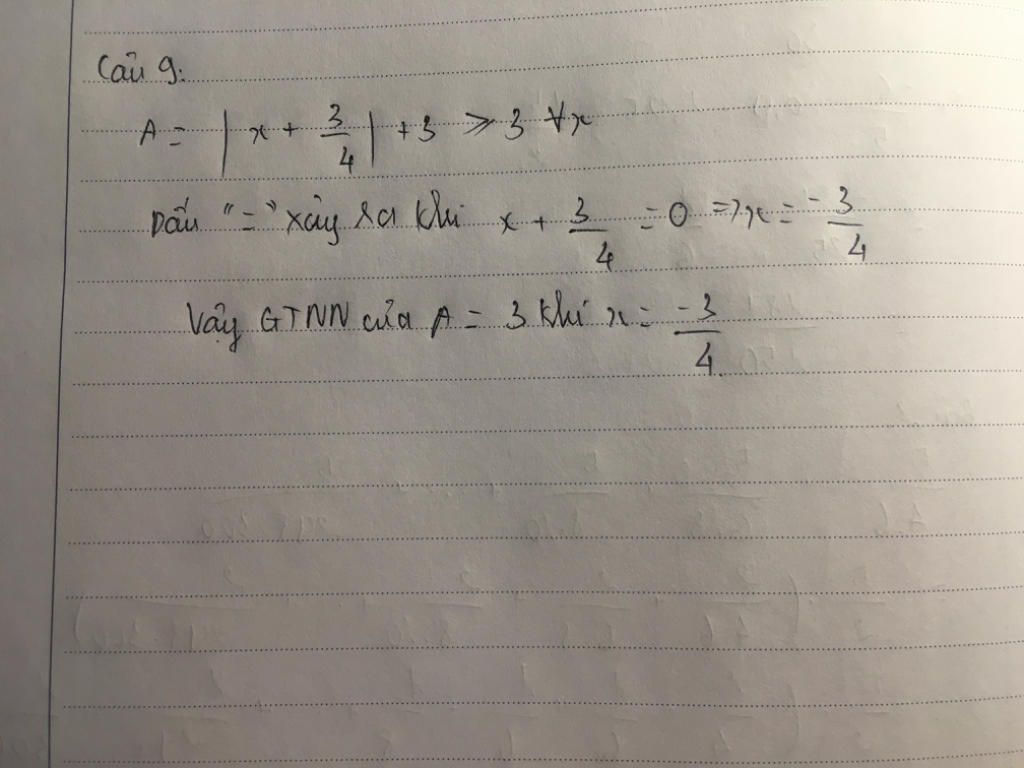 Câu 9:
A = | x + 3/4 | + 3 ⩾ 3 ∀x
Dấu "=" xảy ra khi x + 3/4 = 0 => x = -3/4
Vậy GTNN của A = 3 khi x = -3/4.